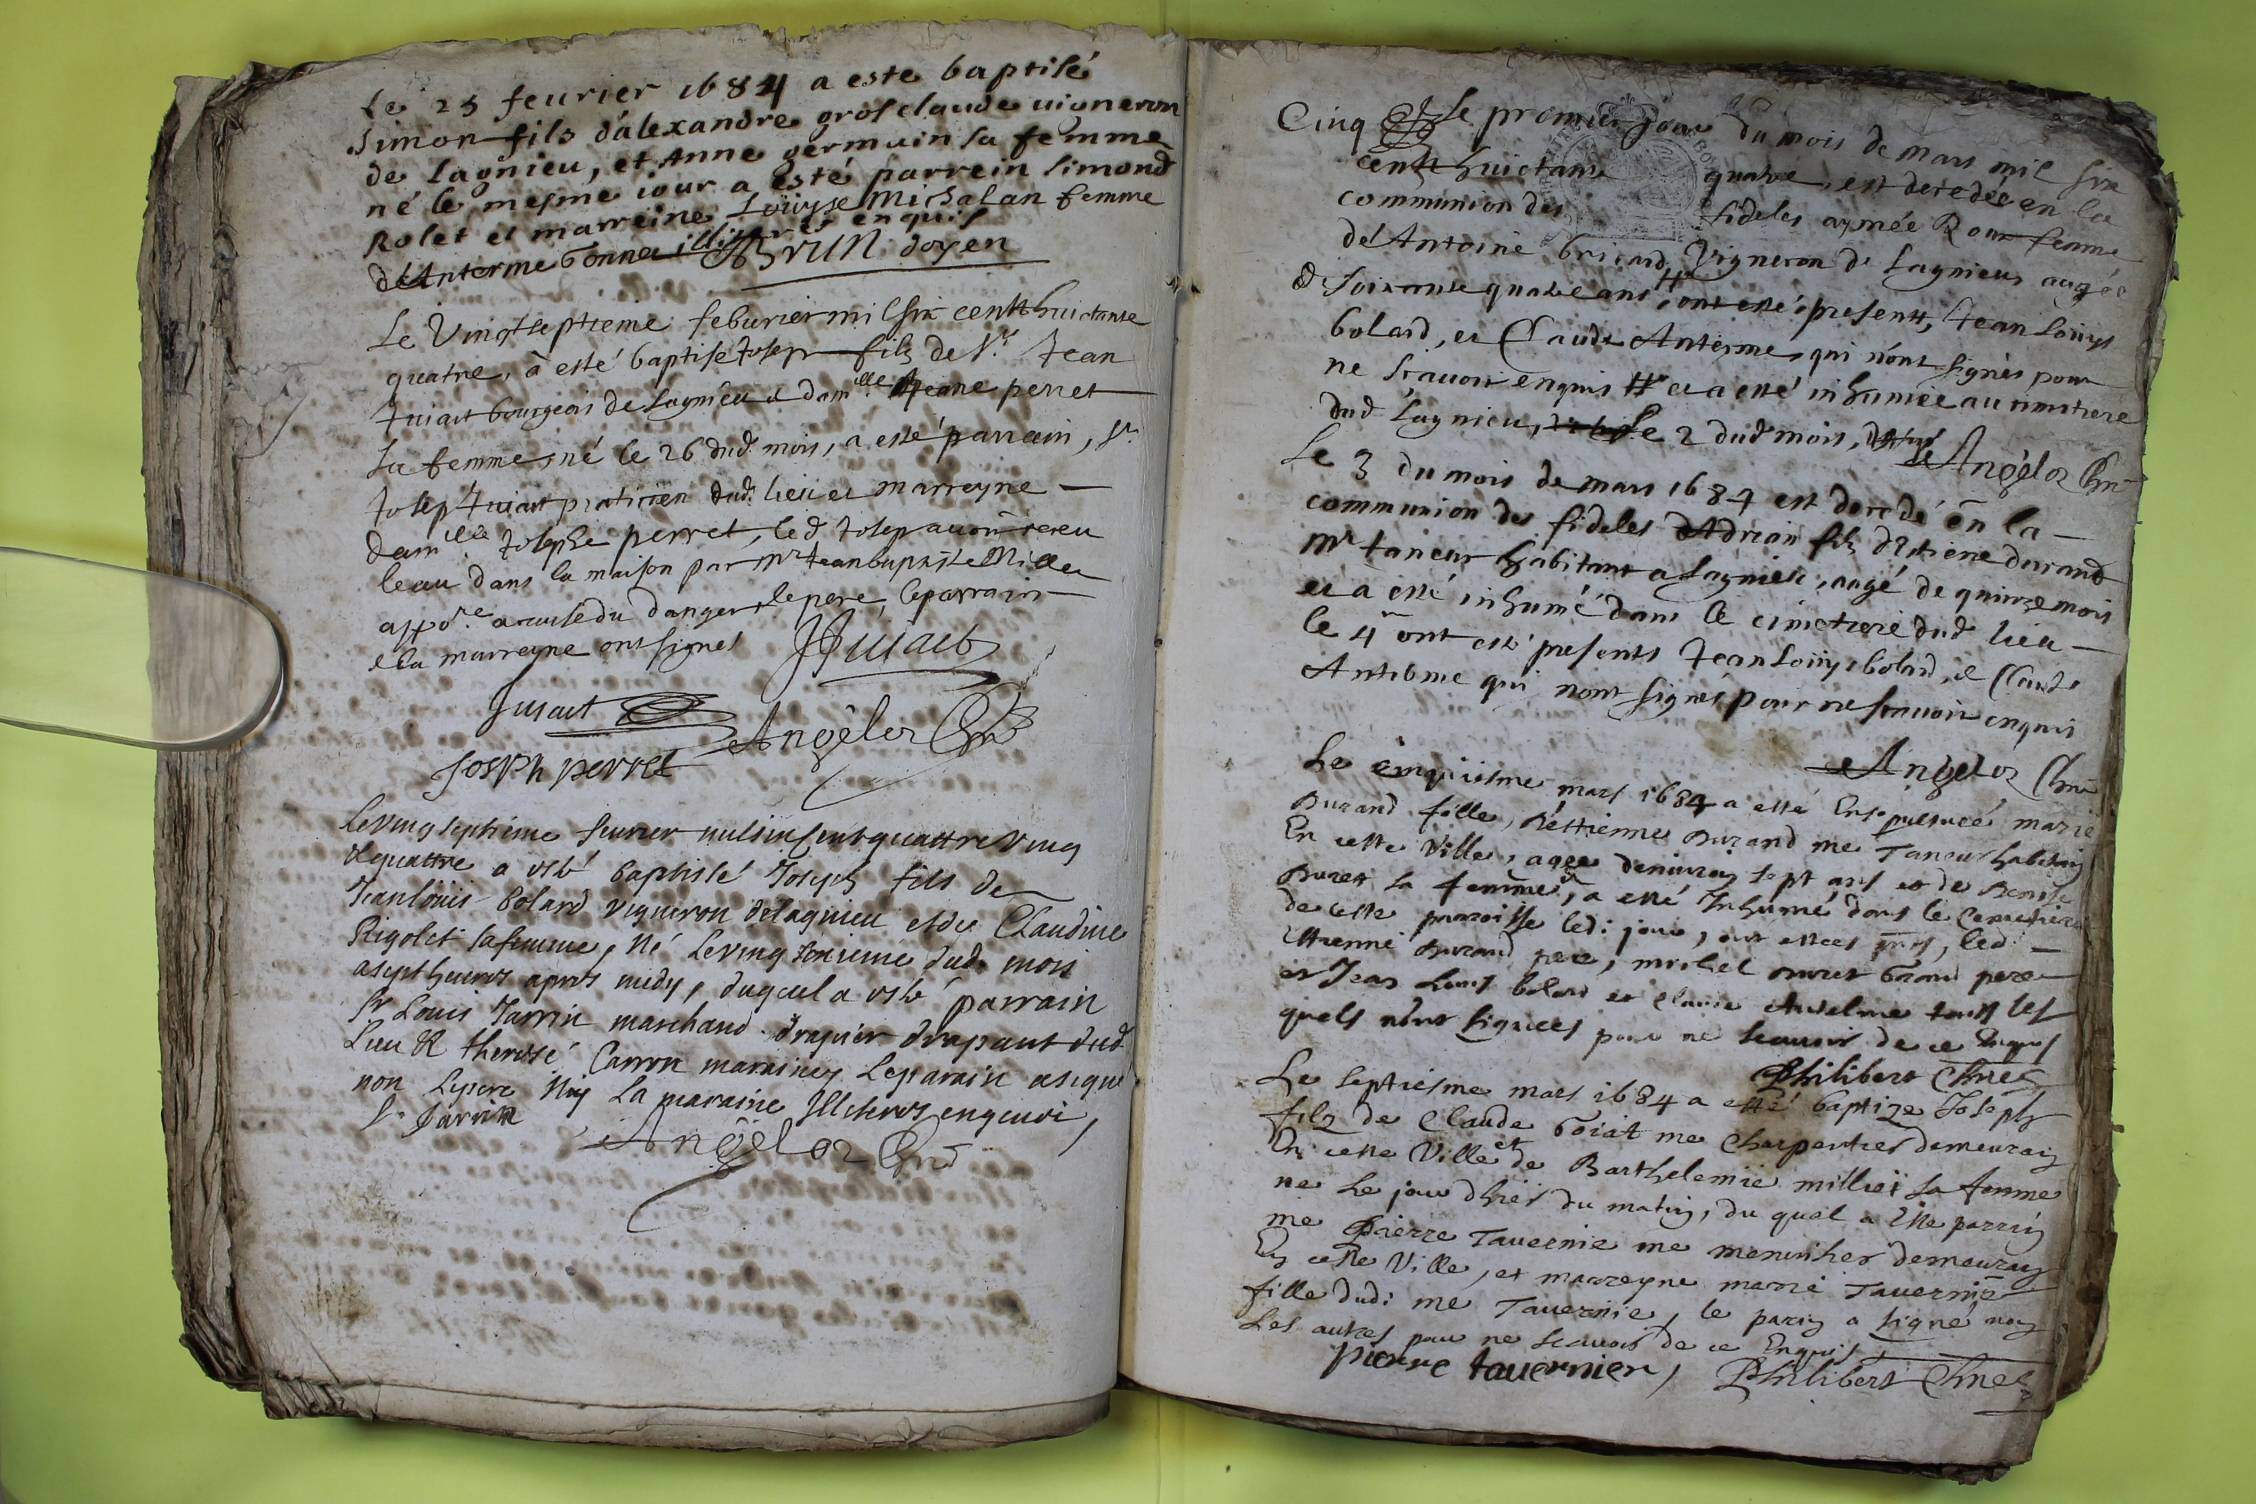 Le 25 feurier 1684 a este baptisé
Simon fils d'alexandre grosclaude uigneron
de Lagnieu, et Anne germain sa femme
né le mesme iour a esté parrein Simond
Rolet et marreine Loüyse Michalan femme
d'Anterme bonnet illiteres enquis
Brun doyen
Le Vingtseptieme feburier mil six centt huictante
quatre, à esté baptisé Joseph fils de Sr. Jean
Juiait bourgeois de Lagnieu et damlle Jeane perret
sa femme, né le 26 dud. mois, a esté parrain, Sr.
Josep Juiait praticien dud. lieu et marreyne
damlle Josephe perret, led. Josep auoit receu
leau dans la maison par Mr Jean baptiste
appore. a cause du danger, le pere, le parrain
et la marreyne ont signes JJuiait
Juiait Angeloz
Joseph perret
Le vingseptieme feurier mil six sent quattre ving
& quattre a esté baptissé Joseph fils de
Jean louis bolard vigneron de lagnieu et de Claudine
Rigolet sa femme, né le ving dud. mois
a sept heures apres midy, duquel a esté parrain
Sr Louis Jarrin marchand drapier drapant dud.
Lieu & theresé Carron maraine, Le parain a signé
non Le pere Ny La maraine Illeteres enquis,
Sr Jarrin Angeloz
Cinq & le premier jour du mois de mars mil six
centt huictante quatre, est decedée en la
communion des fideles aymée Roux femme
de Antoine bricard, Vigneron de Lagnieu aagée
de soixante quatre ans # ont esté presentt, Jean Loüys
bolard, et Claude Anterme, qui n'ont signés pour
ne scauoir enquis # et a esté inhumée au cimetiere
dud. Lagnieu, le 2 dud. mois,
Angeloz
Le 3 du mois de mars 1684 est decedé en la
communion des fideles Adrian fils d'Etiene durand
Mr taneur habitant a Lagnieu, aagé de quinze mois
et a esté inhumé dans le cimetiere dud. lieu
le 4 ont esté presents Jean Loüys bolard, et Claude
Anterme qui n'ont signés pour ne scauoir enquis
Angeloz
Le cinquiesme mars 1684 a esté Ensepulturé marie
Durand fille, Dettienne Durand me Taneur habitan
En cette Ville, agee denuiron sept ans et de
Buret sa femme, a esté Inhumé dans le Cemetiere
de cette parroisse led: jour, ont estees pnts, led:
Ettienne Durand pere, michel Buret Grand pere
et Jean Louis bolard et Claude Antelme tous les
quels n'ont signees pour ne scauoir de ce Enquis
Philibert
Le septiesme mars 1684 a esté baptize Joseph
filz de Claude Goiat me Charpentier demeuran
En cette Ville et de Barthelemie millret sa femme
ne Le jour dhier du matin, du quel a Este parrin
me Pierre Tauernie me menusher demeuran
En cette Ville, et marreyne marie Tauernie
fille dudi me Tauernie, le parin a signé non
Les autres pour ne scauoir de ce Enquis,
pierre tauernier, Philibert